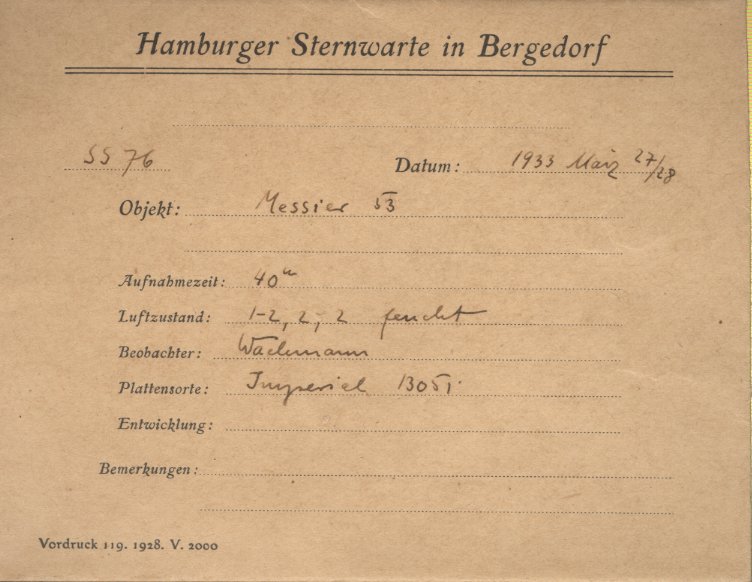 Hamburger Sternwarte in Bergedorf
SS 76 Datum: 1933 März 27/28
Objekt: Messier 53
Aufnahmezeit: 40m
Luftzustand: 1-2, 2, 2 feucht
Beobachter: Wachmann
Plattensorte: Imperial 1305
Entwicklung:
Bemerkungen:
Vordruck 119. 1928. V. 2000